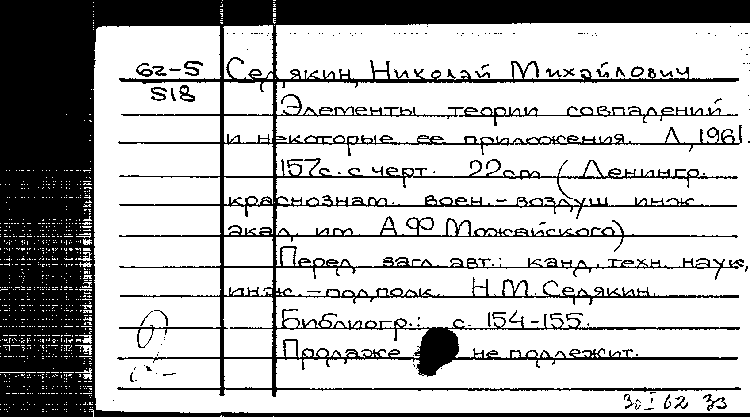 62-5 Седякин, Николай Михайлович
S18
Элементы теории совпадений
и некоторые ее приложения. Л, 1961.
157с. с черт. 22cm (Ленингр.
краснознам. воен.-воздуш. инж.
акад. им. А.Ф Можайского)
Перед загл. авт.: канд. техн. наук,
инж.-подполк. Н.М. Седякин.
Библиогр.: с. 154-155.
Продаже не подлежит.
30 I 62 33